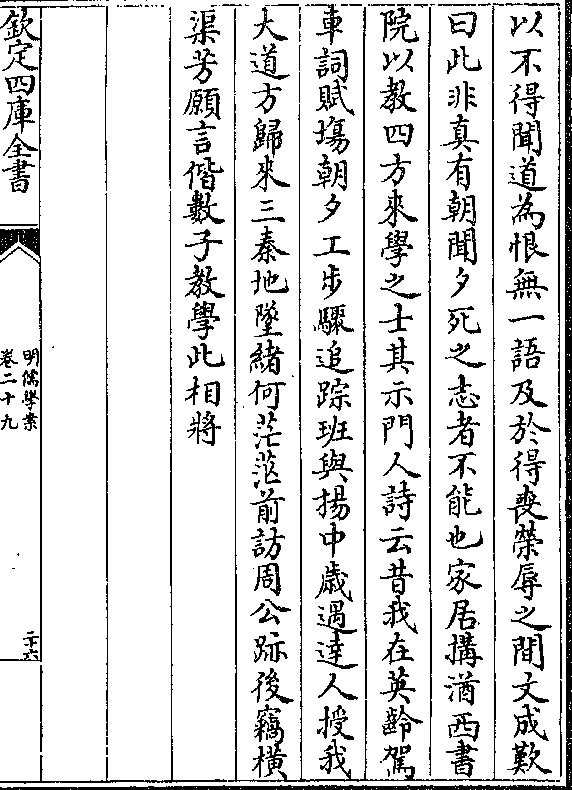 以不得聞道為恨無一語及於得喪榮辱之間文成歎
曰此非真有朝聞夕死之志者不能也家居搆湭西書
院以教四方來學之士其示門人詩云昔我在英齡駕
車詞賦塲朝夕工步驟追踪班與揚中歲遇達人授我
大道方歸來三秦地墜緒何茫茫前訪周公跡後竊橫
渠芳願言偕數子教學此相將
欽定四庫全書
明儒學案
卷二十九
二十六